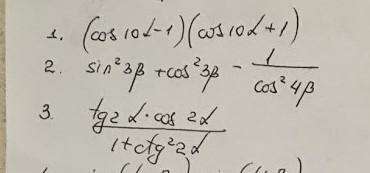 1. (cos 10α-1)(cos 10α+1)
2. sin²3β + cos²3β - 1/cos²4β
3. tg2α·cos 2α/1+ctg²2α